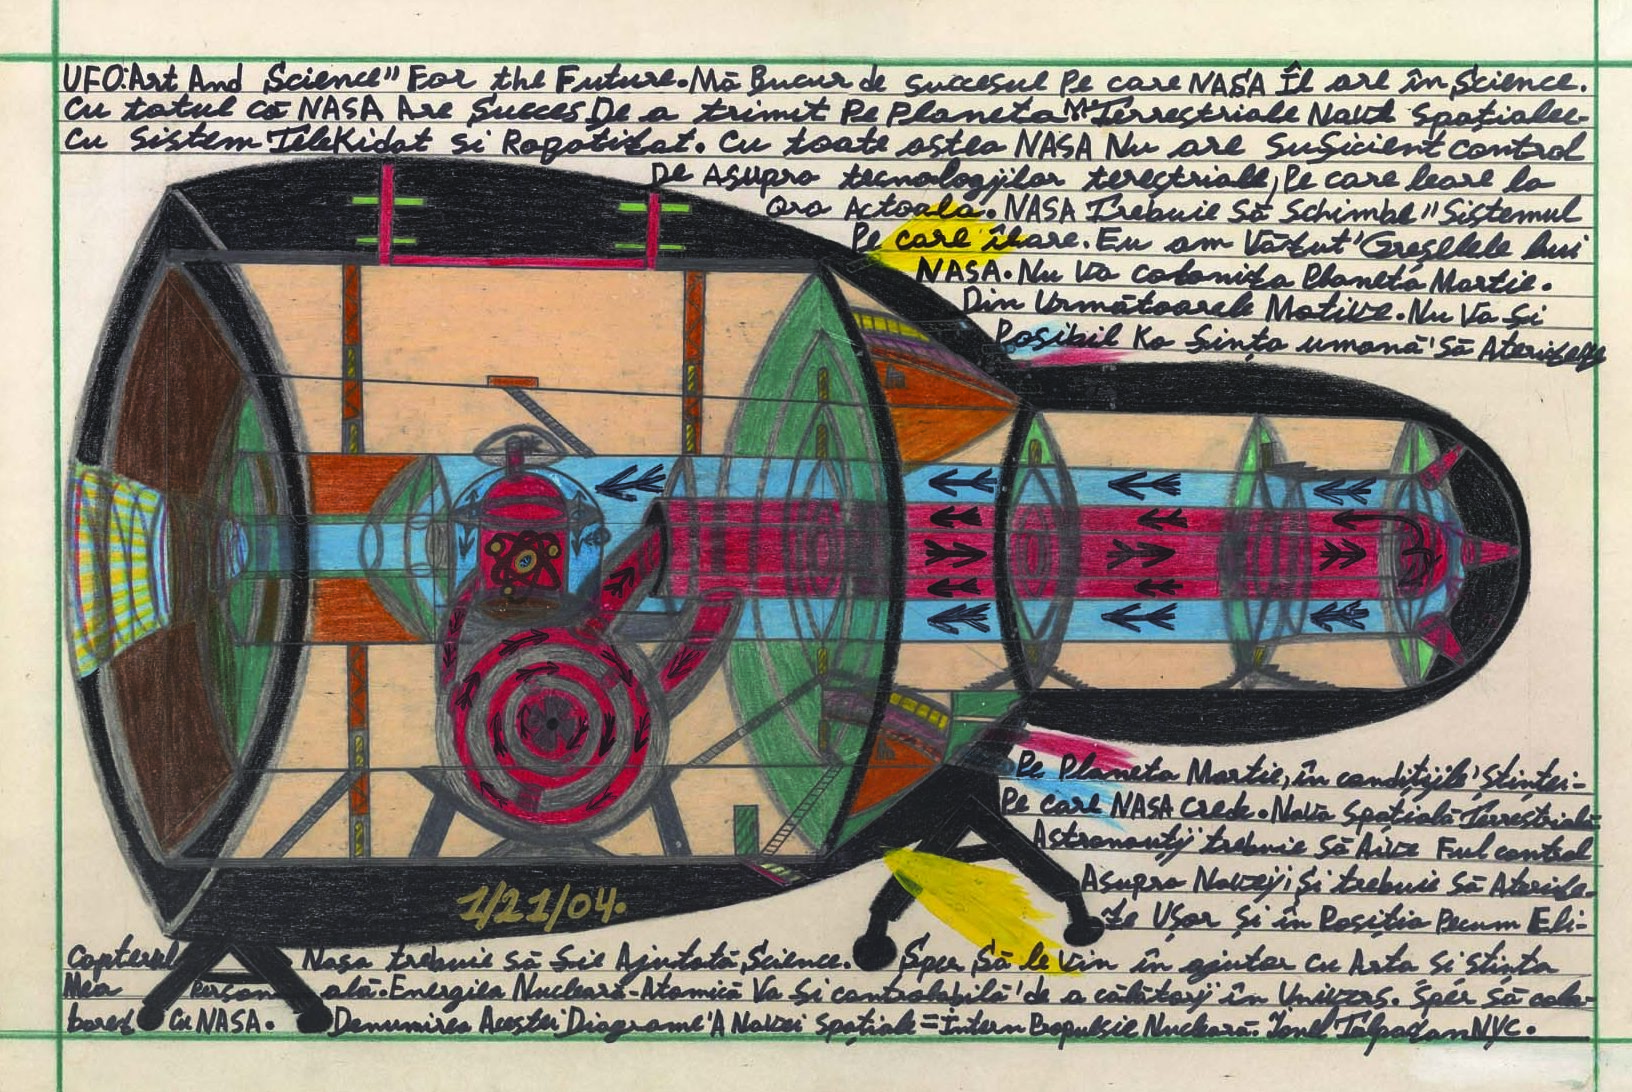 UFO:Art And Science" For the Future. Mă Bucur de succesul Pe care NASA Îl are în Science.
Cu totul că NASA Are Succes De a trimit Pe Planeta Terrestriale Nave Spațiale-
Cu Sistem TeleKidat Si Robotizat. Cu toate astea NASA Nu are Suficient control
De Asupra tecnologjilor terestriale, Pe care leare la
Ora Actoala. NASA Trebuie Să Schimbe" Sistemul
Pe care îlare. Eu am Văzut' Greșelele lui
NASA. Nu Va coloniza Planeta Martie.
Din Următoarele Motive. Nu Va Și
Posibil Ka Ființa umană' Să Aterizeze
Pe Planeta Martie, în condițiile' Științei-
Pe care NASA Crede. Nava Spațială Terrestrială-
Astronauți' trebuie Să Aive Ful control
Asupra Navei, Și trebuie Să Aterize-
ze Ușor Și în Poziția Pecum Eli-
Copterul Nasa trebuie să Fie Ajutată, Science. Sper, Să le Vin în ajutor cu Arta Si Stința
Mea Personală. Energiea Nucleară-Atomică Va Și controlabilă' de a călători' în Univers. Sper Să cola-
borez Cu NASA. Denumirea Acestei Diagrame' A Navei Spațiale = Intern Propulsie Nucleară. Ionel Talpazan NYC.
1/21/04.